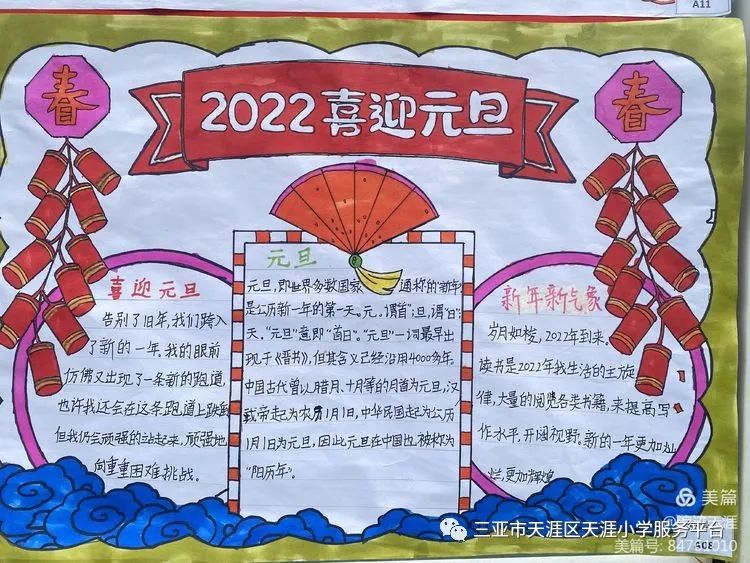 A11
春
2022喜迎元旦
春
喜迎元旦
告别了旧年,我们跨入
了新的一年,我的眼前
仿佛又出现了一条新的跑道,
也许我还会在这条跑道上跌倒
但我仍会顽强的站起来,顽强地
向重重困难挑战。
元旦
元旦,即世界多数国家通称的新年
是公历新一年的第一天。元,谓"首";旦,谓"日";
天。"元旦"意即"首日"。"元旦"一词最早出
现于《晋书》,但其含义已经沿用4000多年。
中国古代曾以腊月、十月等的月首为元旦,汉
武帝起为农历1月1日,中华民国起为公历
1月1日为元旦,因此元旦在中国也被称为
"阳历年"。
新年新气象
岁月如梭,2022年到来。
读书是2022年我生活的主旋
律,大量的阅览各类书籍,来提高写
作水平,开阔视野。新的一年更加灿
烂,更加辉煌
美篇
三亚市天涯区天涯小学服务平台
美篇号:
A08